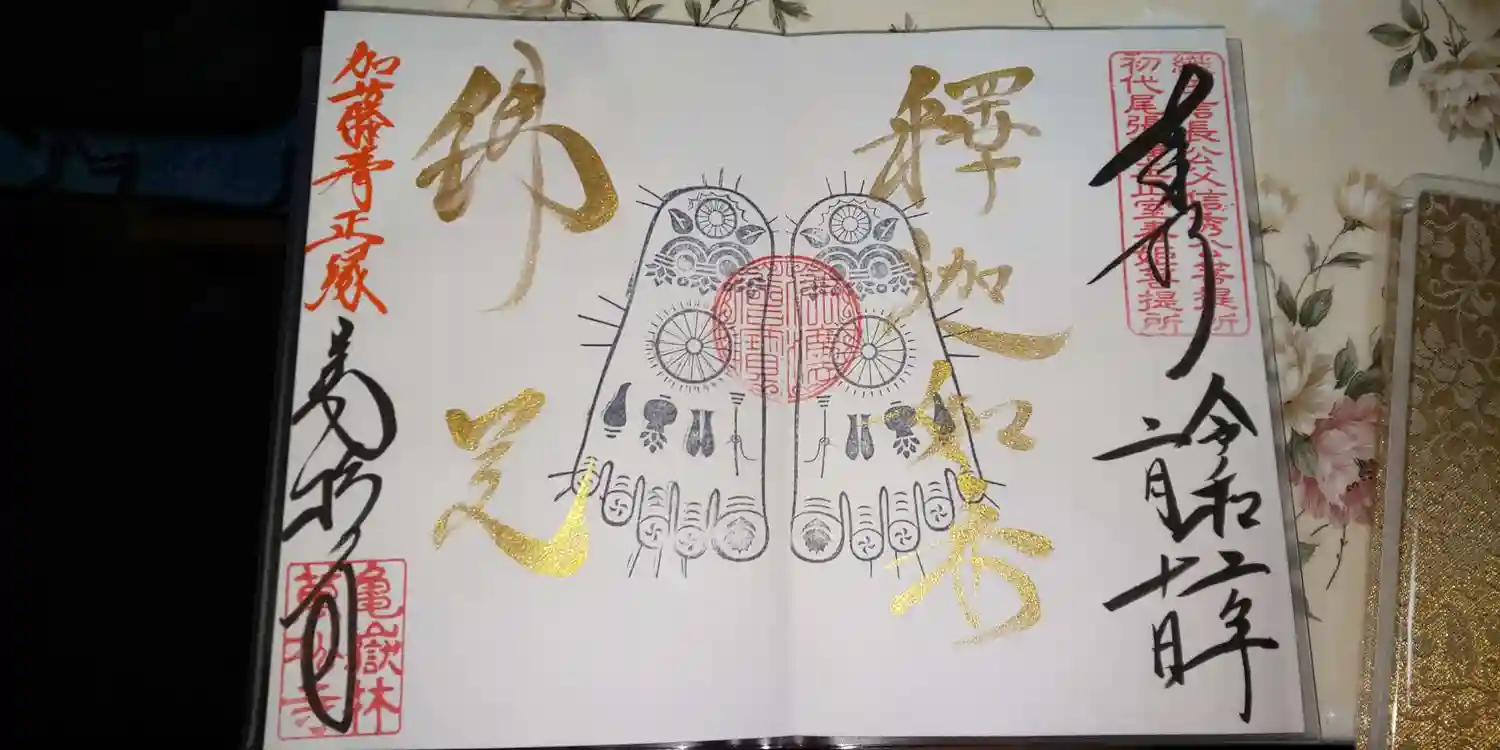 奉拝
織田信長公父信秀公菩提所
初代尾張藩主正室春姫菩提所
令和二年
二月十日
釋迦如来
佛足
加藤清正縁
萬松寺
亀嶽林
萬松寺